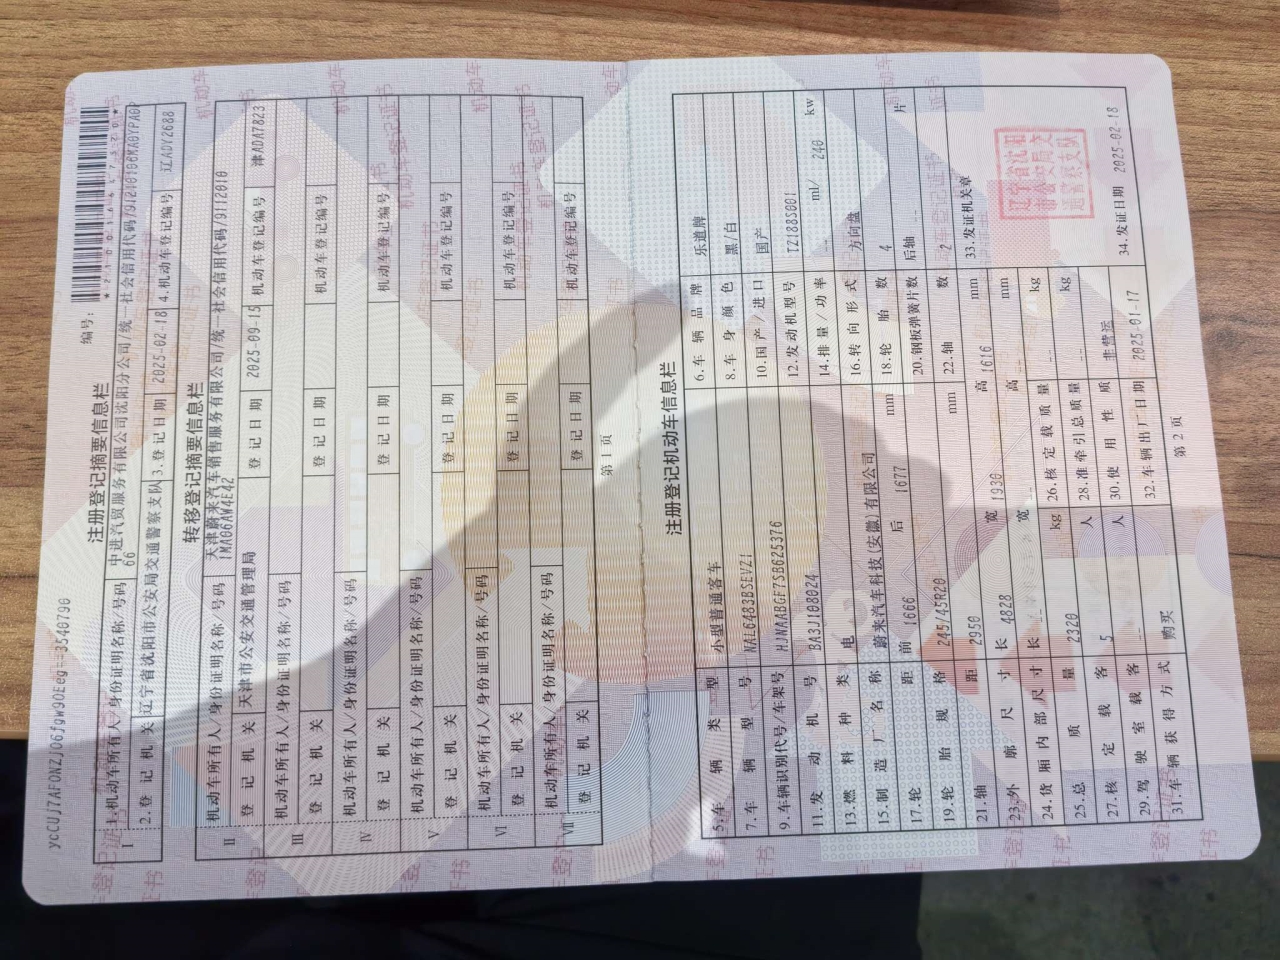 ycCUJ7AFONZJO6fgw90Eeg==3540790
编号：
注册登记摘要信息栏
Ⅰ
1.机动车所有人/身份证明名称/号码 中进汽贸服务有限公司沈阳分公司/统一社会信用代码/91210106MA0YPA0P
66
2.登记机关 辽宁省沈阳市公安局交通警察支队 3.登记日期 2025-02-18 4.机动车登记编号 辽ADY2688
转移登记摘要信息栏
Ⅱ
机动车所有人/身份证明名称/号码 天津蔚来汽车销售服务有限公司/统一社会信用代码/9112010
1MA06AW4E42
登记机关 天津市公安交通管理局 登记日期 2025-09-15 机动车登记编号 津ADA7823
Ⅲ
机动车所有人/身份证明名称/号码
登记机关 登记日期 机动车登记编号
Ⅳ
机动车所有人/身份证明名称/号码
登记机关 登记日期 机动车登记编号
Ⅴ
机动车所有人/身份证明名称/号码
登记机关 登记日期 机动车登记编号
Ⅵ
机动车所有人/身份证明名称/号码
登记机关 登记日期 机动车登记编号
Ⅶ
机动车所有人/身份证明名称/号码
登记机关 登记日期 机动车登记编号
第 1 页
注册登记机动车信息栏
5.车辆类型 小型普通客车 6.车辆品牌 乐道牌
7.车辆型号 NAL6483BSEVZ1 8.车身颜色 黑/白
9.车辆识别代号/车架号 HJNAABGF7SB625376 10.国产/进口 国产
11.发动机号 BA3J108024 12.发动机型号 TZ188S001
13.燃料种类 电 14.排量/功率 -- ml/ 240 kw
15.制造厂名称 蔚来汽车科技(安徽)有限公司 16.转向形式 方向盘
17.轮距 前 1666 后 1677 mm 18.轮胎数 4
19.轮胎规格 245/45R20 20.钢板弹簧片数 后轴 -- 片
21.轴距 2950 mm 22.轴数 2
23.外廓尺寸 长 4828 宽 1930 高 1616 mm 33.发证机关章
24.货厢内部尺寸 长 -- 宽 -- 高 -- mm
25.总质量 2320 kg 26.核定载质量 -- kg
27.核定载客 5 人 28.准牵引总质量 -- kg
29.驾驶室载客 -- 人 30.使用性质 非营运
31.车辆获得方式 购买 32.车辆出厂日期 2025-01-17 34.发证日期 2025-02-18
第 2 页